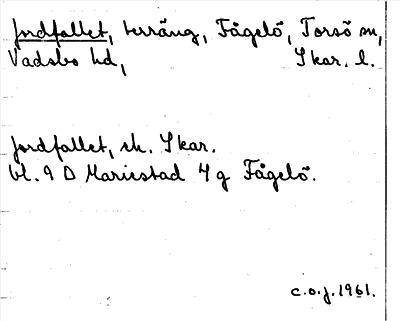 Jordfallet, terräng, Fågelö, Torsö sn,
Vadsbo hd, Skar. l.
Jordfallet, ek. Skar.
bl. 9 D Mariestad 4 g Fågelö.
c.o.j. 1961.